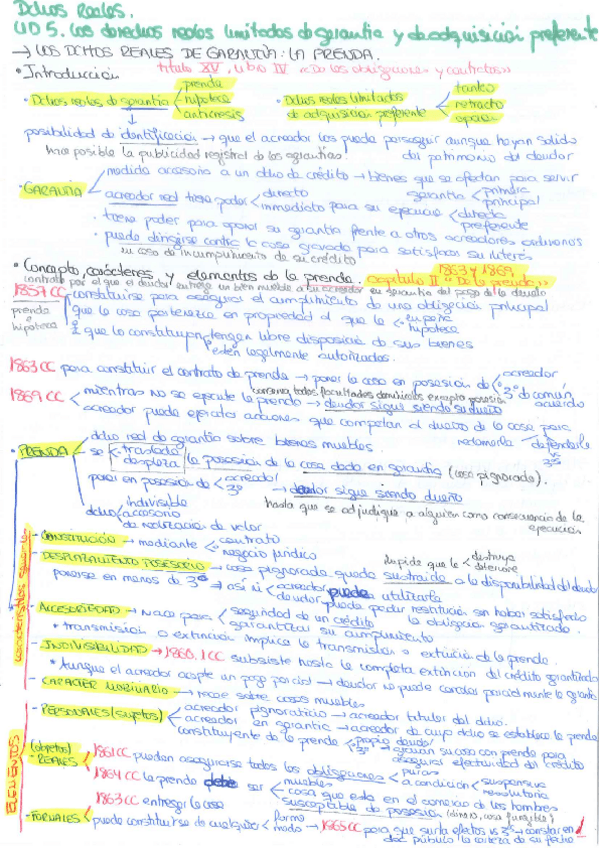 Dchos Reales.
UD 5. Los derechos reales limitados de garantía y de adquisición preferente
→ LOS DCHOS REALES DE GARANTÍA: LA PRENDA.
• Introducción título XV, Libro IV «De las obligaciones y contratos»
• Dchos reales de garantía prenda hipoteca anticresis
• Dchos reales limitados de adquisición preferente tanteo retracto opción
posibilidad de identificación → que el acreedor los pueda perseguir aunque hayan salido del patrimonio del deudor
hace posible la publicidad registral de las garantías.
• GARANTÍA medida accesoria a un dcho de crédito → bienes que se afectan para servir garantía principal
acreedor real tiene poder directo inmediato para su ejecución directa preferente
• tiene poder para oponer su garantía frente a otros acreedores ordinarios
• puede dirigirse contra la cosa gravada para satisfacer su interés
en caso de incumplimiento de su crédito
• Concepto, caracteres y elementos de la prenda. capítulo II "De la prenda" 1863 y 1869
contrato por el que el deudor entrega un bien mueble a su acreedor en garantía del pago de la deuda
1857 CC constituirse para asegurar el cumplimiento de una obligación principal
prenda e hipoteca
que la cosa pertenezca en propiedad al que la empeña hipoteca
que la constituyan tengan libre disposición de sus bienes
estén legalmente autorizados.
1863 CC para constituir el contrato de prenda → poner la cosa en posesión de acreedor 3º de común acuerdo
1869 CC mientras no se ejecute la prenda → deudor sigue siendo su dueño
conserva todas facultades dominicales excepto posesión
acreedor puede ejercitar acciones que competan al dueño de la cosa para reclamarla defenderla vs 3º
• PRENDA dcho real de garantía sobre bienes muebles.
se traslada desplaza la posesión de la cosa dada en garantía (cosa pignorada).
pasa en posesión de acreedor 3º → deudor sigue siendo dueño
hasta que se adjudique a alguien como consecuencia de la ejecución
dcho indivisible accesorio de realización de valor
- CONSTITUCIÓN → mediante contrato negocio jurídico
- DESPLAZAMIENTO POSESORIO → cosa pignorada queda sustraída a la disponibilidad del deudor
impide que la destruya deteriore
ponerse en manos de 3º → así ni acreedor puede utilizarla
deudor puede pedir restitución sin haber satisfecho la obligación garantizada.
- ACCESORIEDAD → nace para seguridad de un crédito garantizar su cumplimiento
* transmisión o extinción implica la transmisión o extinción de la prenda.
- INDIVISIBILIDAD → 1860.1 CC subsiste hasta la completa extinción del crédito garantizado
* Aunque el acreedor acepte un pago parcial → deudor no puede cancelar parcialmente la garantía
- CARÁCTER MOBILIARIO → recae sobre cosas muebles
ELEMENTOS
- PERSONALES (sujetos) acreedor pignoraticio → acreedor titular del dcho.
acreedor en garantía → acreedor de cuyo dcho se establece la prenda
constituyente de la prenda propio deudor 3º → asegurar efectividad del crédito
- REALES (objetos) 1861 CC pueden asegurarse todas las obligaciones puras a condición suspensiva resolutoria
1864 CC la prenda debe ser muebles
cosa que esté en el comercio de los hombres
susceptible de posesión
- FORMALES 1863 CC entregar la cosa
puede constituirse de cualquier forma modo → 1865 CC para que surta efectos vs 3º → constar en doc. público la certeza de su fecha